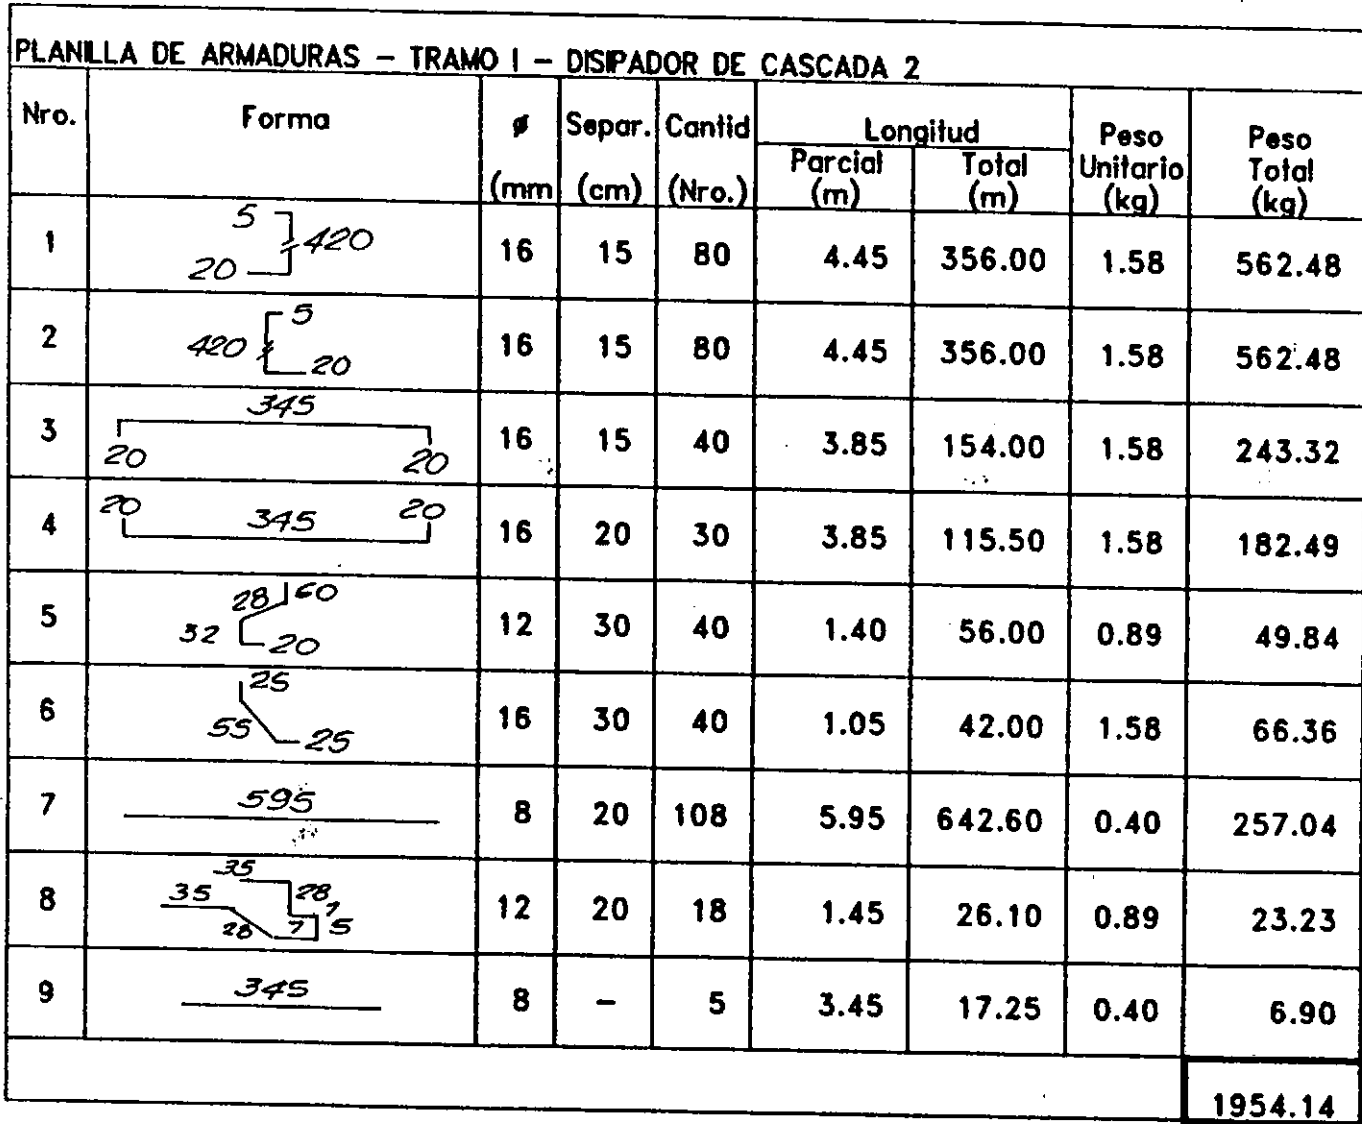 PLANILLA DE ARMADURAS – TRAMO I – DISIPADOR DE CASCADA 2
Nro. Forma ø (mm Separ. (cm) Cantid (Nro.) Longitud Parcial (m) Total (m) Peso Unitario (kg) Peso Total (kg)
1 5 420 20 16 15 80 4.45 356.00 1.58 562.48
2 5 420 20 16 15 80 4.45 356.00 1.58 562.48
3 345 20 20 16 15 40 3.85 154.00 1.58 243.32
4 20 345 20 16 20 30 3.85 115.50 1.58 182.49
5 28 60 32 20 12 30 40 1.40 56.00 0.89 49.84
6 25 55 25 16 30 40 1.05 42.00 1.58 66.36
7 595 8 20 108 5.95 642.60 0.40 257.04
8 35 35 28 7 28 7 5 12 20 18 1.45 26.10 0.89 23.23
9 345 8 – 5 3.45 17.25 0.40 6.90
1954.14